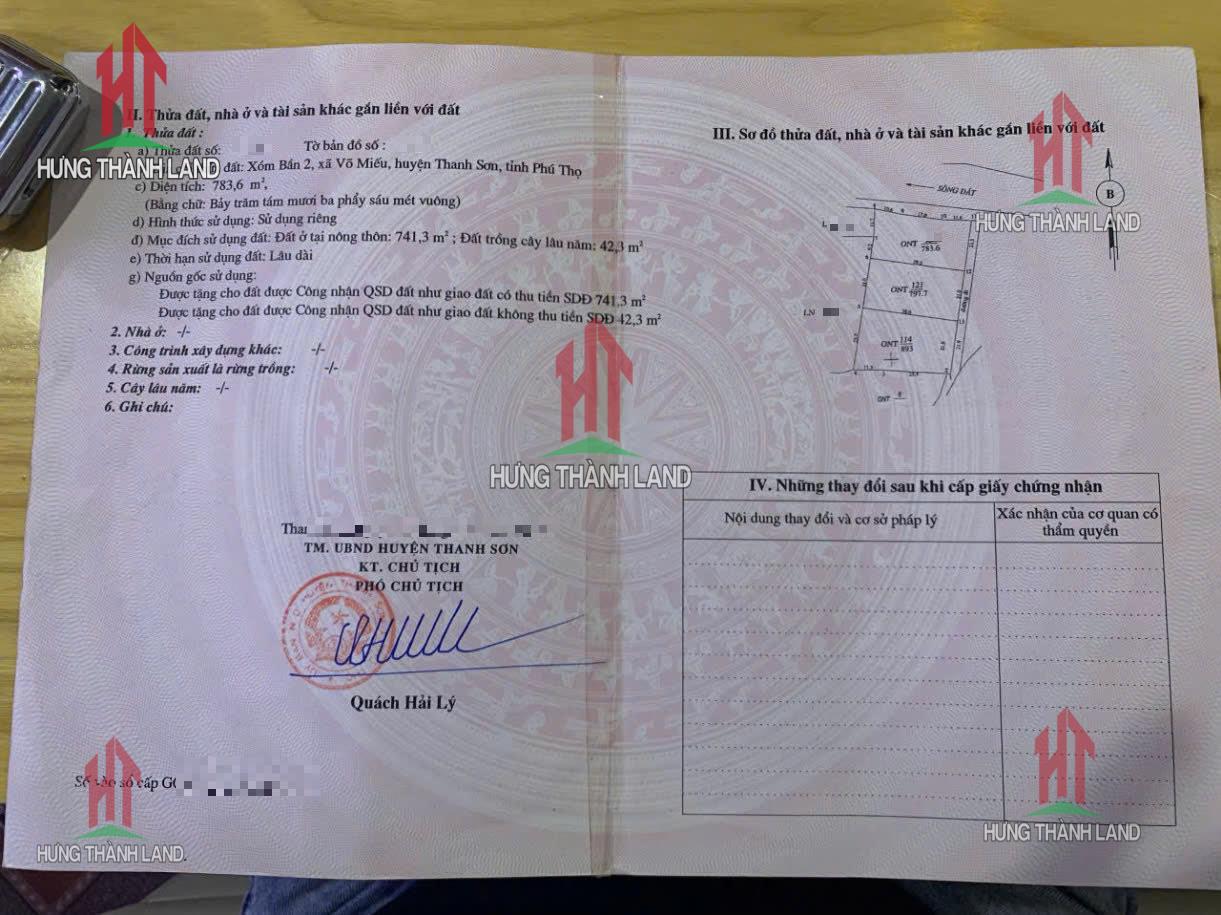 II. Thửa đất, nhà ở và tài sản khác gắn liền với đất
1. Thửa đất :
a) Thửa đất số: Tờ bản đồ số :
đất: Xóm Bần 2, xã Võ Miếu, huyện Thanh Sơn, tỉnh Phú Thọ
c) Diện tích: 783,6 m²,
(Bằng chữ: Bảy trăm tám mươi ba phẩy sáu mét vuông)
d) Hình thức sử dụng: Sử dụng riêng
đ) Mục đích sử dụng đất: Đất ở tại nông thôn: 741,3 m² ; Đất trồng cây lâu năm: 42,3 m²
e) Thời hạn sử dụng đất: Lâu dài
g) Nguồn gốc sử dụng:
Được tặng cho đất được Công nhận QSD đất như giao đất có thu tiền SDĐ 741,3 m²
Được tặng cho đất được Công nhận QSD đất như giao đất không thu tiền SDĐ 42,3 m²
2. Nhà ở: -/-
3. Công trình xây dựng khác: -/-
4. Rừng sản xuất là rừng trồng: -/-
5. Cây lâu năm: -/-
6. Ghi chú:
Than
TM. UBND HUYỆN THANH SƠN
KT. CHỦ TỊCH
PHÓ CHỦ TỊCH
Quách Hải Lý
Số vào sổ cấp GC
III. Sơ đồ thửa đất, nhà ở và tài sản khác gắn liền với đất
SÔNG ĐẤT
B
ONT 783.6
ONT 121
197.7
LN
ONT 114
893
ONT 8
IV. Những thay đổi sau khi cấp giấy chứng nhận
Nội dung thay đổi và cơ sở pháp lý
Xác nhận của cơ quan có
thẩm quyền
HƯNG THÀNH LAND
HƯNG THÀNH LAND
HƯNG THÀNH LAND
HƯNG THÀNH LAND
HƯNG THÀNH LAND